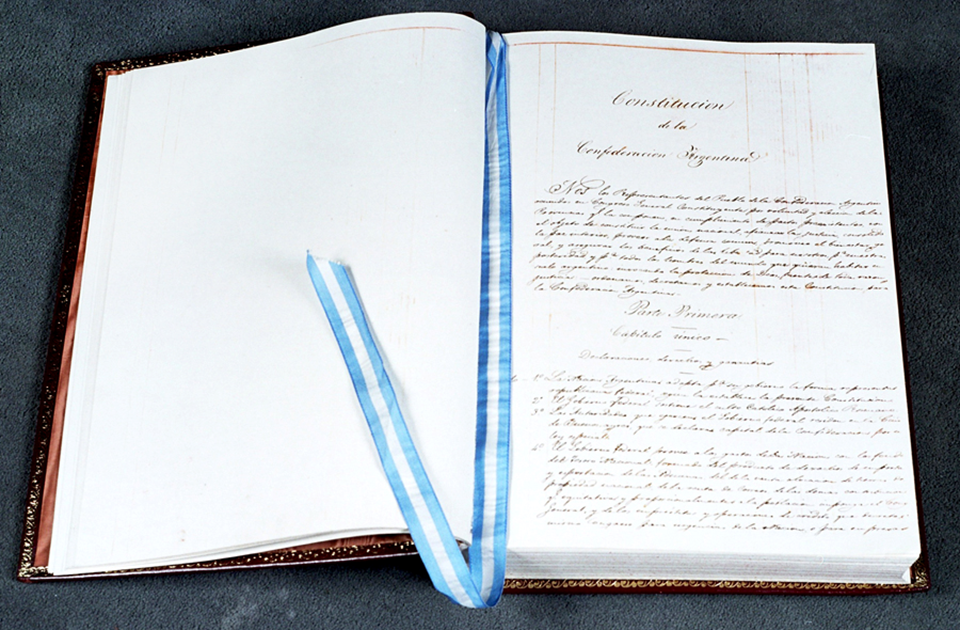 Constitucion
de la
Confederacion Argentina
Nos los Representantes del Pueblo de la Confederacion Argentina
reunidos en Congreso General Constituyente por voluntad y eleccion de las
Provincias q.e la componen, en cumplimiento de pactos preexistentes, con
el objeto de constituir la union nacional, afianzar la justicia, consolidar
la paz interior, proveer a la defensa comun, promover el bienestar ge
neral, y asegurar los beneficios de la libertad para nosotros p.a nuestra
posteridad y p.a todos los hombres del mundo que quieran habitar en el
suelo argentino; invocando la proteccion de Dios, fuente de toda razon y
justicia: ordenamos, decretamos y establecemos esta Constitucion, para
la Confederacion Argentina.
Parte Primera
Capitulo unico
Declaraciones, derechos y garantias
1.o La Nacion Argentina adopta p.a su gobierno la forma representativa
republicana federal; segun la establece la presente Constitucion
2.o El Gobierno Federal sostiene el culto Catolico Apostolico Romano
3.o Las Autoridades que ejercen el Gobierno federal residen en la Ciudad
de Buenos Ayres, que se declara capital de la Confederacion por una
ley especial
4.o El Gobierno federal provee a los gastos de la Nacion con los fondos
del Tesoro Nacional, formado del producto de derechos de importacion
y exportacion de las Aduanas, del de la venta o locacion de tierras de
propiedad nacional, de la renta de Correos, de las demas contribuciones
q.e equitativa y proporcionalmente a la poblacion imponga el Congreso
General, y de los emprestitos y operaciones de credito que decrete el
mismo Congreso para urgencias de la Nacion o para empresas